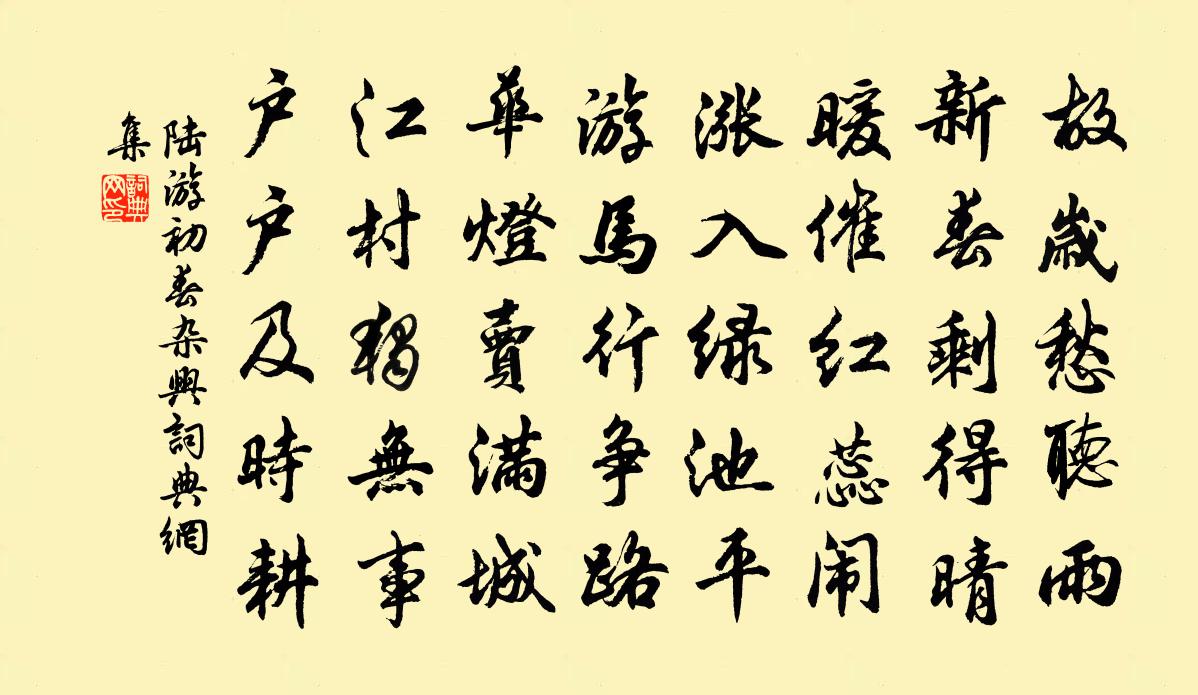 故歳愁聽雨
新春剩得晴
暖催红蕊闹
漲入绿池平
游馬行争路
華燈賣滿城
江村獨無事
户户及時耕
陆游初春杂興詞典網
集
詞典
网印